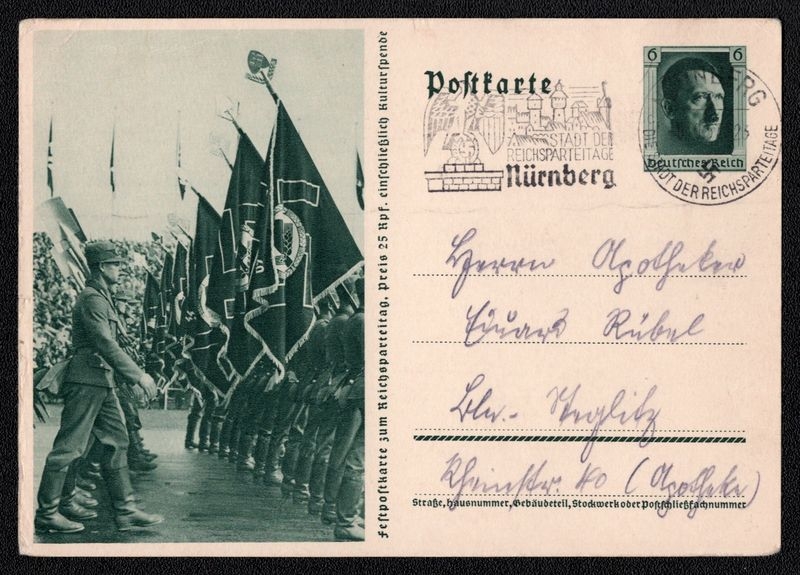 Festpostkarte zum Reichsparteitag, Preis 25 Rpf. einschließlich Kulturspende
Postkarte
STADT DER
REICHSPARTEITAGE
Nürnberg
6 6
Deutsches Reich
NÜRNBERG
STADT DER REICHSPARTEITAGE
Herrn Apotheker
Eduard Rübel
Bln.- Steglitz
Rheinstr. 40 (Apotheke)
Straße, Hausnummer, Gebäudeteil, Stockwerk oder Postschließfachnummer